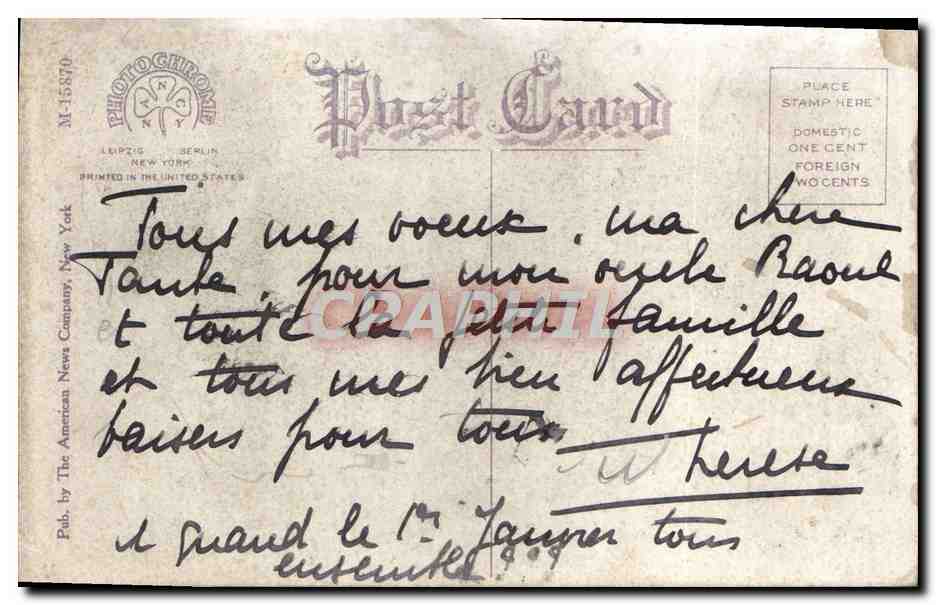 M-15870
Pub. by The American News Company, New York
PHOTOCHROME
A N C
N Y
LEIPZIG BERLIN
NEW YORK
PRINTED IN THE UNITED STATES
Post Card
PLACE
STAMP HERE
DOMESTIC
ONE CENT
FOREIGN
TWO CENTS
Tous mes voeux, ma chere
Tante, pour mon oncle Raoul
et toute la petite famille
et tous mes bien affectueux
baisers pour tous
Therese
A quand le 1er Janvier tous
ensemble ???
CPAPHIL